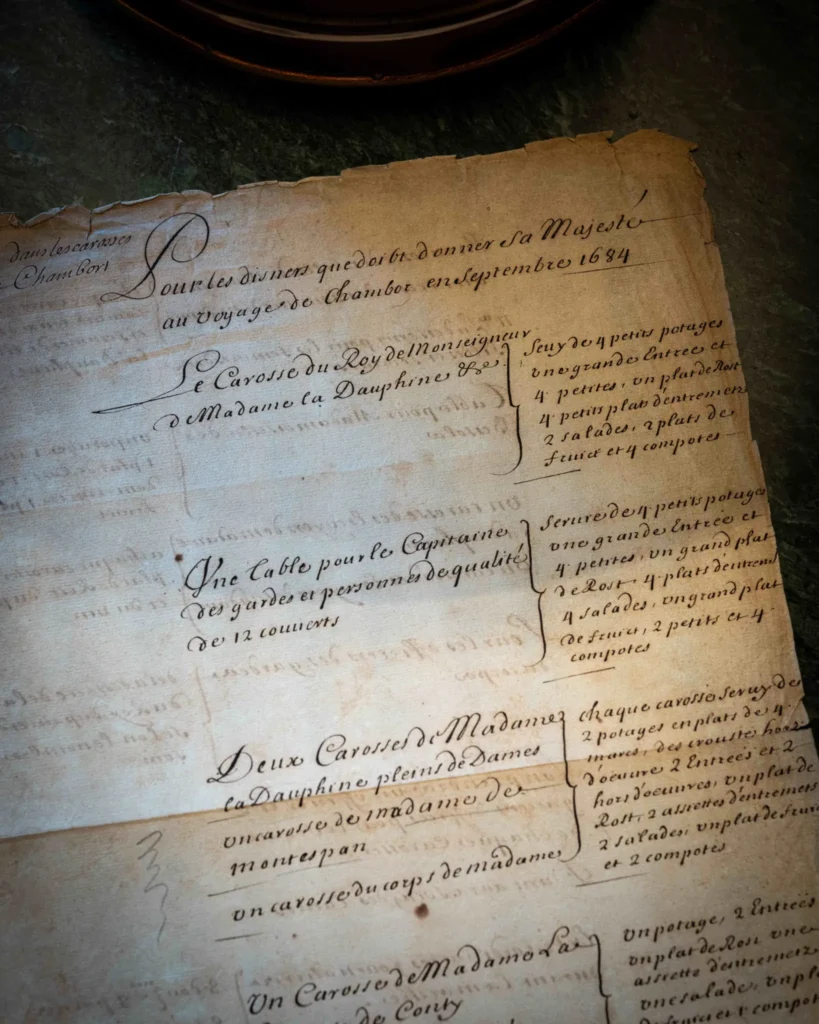 dans les carosses
Chambort
Pour les disners que doibt donner sa Majesté
au voyage de Chambor en septembre 1684
Le Carosse du Roy de Monseigneur
de Madame la Dauphine &c.
seuy de 4 petits potages
une grande Entrée et
4 petites, un plat de Rost
4 petits plat d'entremets
2 salades, 2 plats de
fruict et 4 compotes
Une table pour le Capitaine
des gardes et personnes de qualité
de 12 couverts
serure de 4 petits potage
une grande Entrée et
4 petites, un grand plat
de Rost, 4 plats d'entrem
4 salades, un grand plat
de fruict, 2 petits et 4
compotes
Deux Carosses de Madame
la Dauphine pleins de Dames
un carosse de madame de
montespan
un carosse du corps de madame
chaque carosse seruy de
2 potages en plats de 4
marcs, des crouste hors
d'oeuure 2 Entrées et 2
hors d'oeuures, un plat de
Rost, 2 assiettes d'entremets
2 salades, un plat de fruict
et 2 compotes
Un Carosse de Madame La
de Conty
un potage, 2 Entrées
un plat de Rost une
assiette d'entremetz
une salade, un pl
de fruict et 1 compot